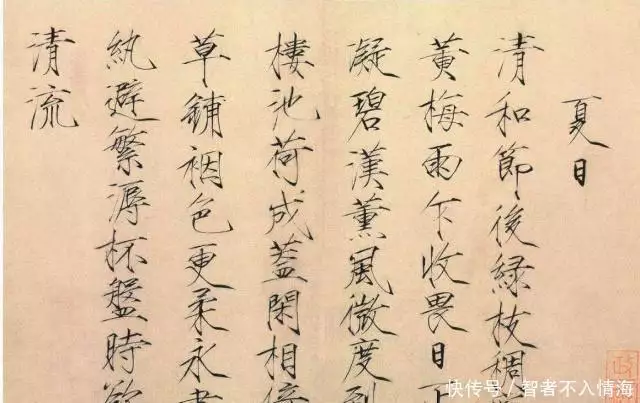 夏日
清和節後緑枝稠
黃梅雨乍收畏日
凝碧漢薰風微度到
樓池荷成蓋閑相倚
草鋪裀色更柔永
紈避繁溽杯盤時欲
清流
快传号/智者不入情海